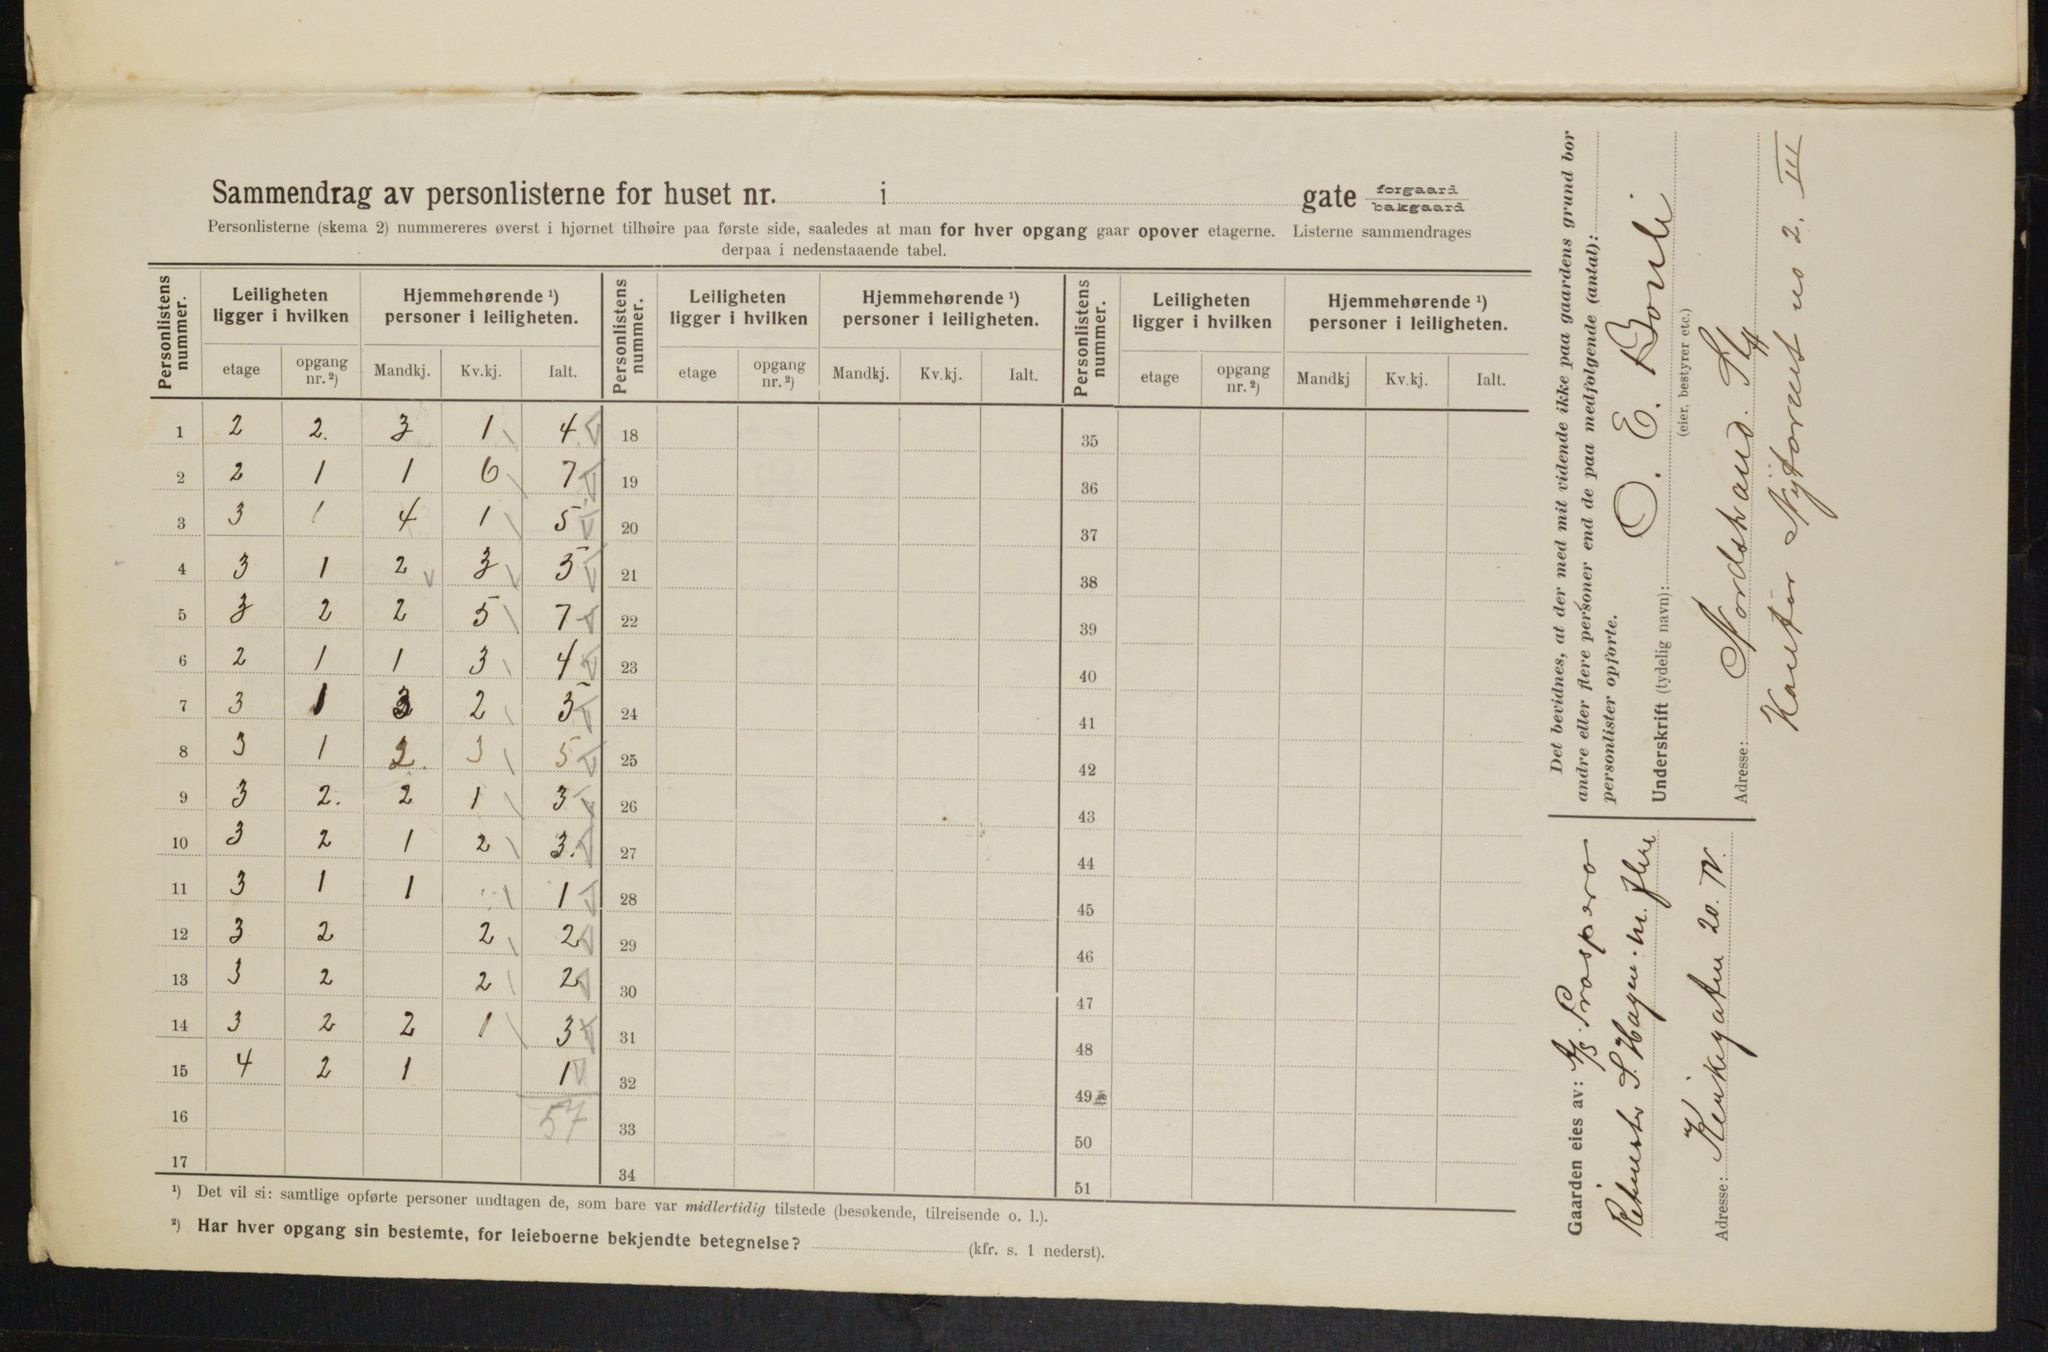 Sammendrag av personlisterne for huset nr. i gate forgaard
bakgaard
Personlisterne (skema 2) nummereres øverst i hjørnet tilhøire paa første side, saaledes at man for hver opgang gaar opover etagerne. Listerne sammendrages
derpaa i nedenstaaende tabel.
Personlistens nummer. Leiligheten ligger i hvilken Hjemmehørende ¹) personer i leiligheten. Personlistens nummer. Leiligheten ligger i hvilken Hjemmehørende ¹) personer i leiligheten. Personlistens nummer. Leiligheten ligger i hvilken Hjemmehørende ¹) personer i leiligheten.
etage opgang nr. ²) Mandkj. Kv.kj. Ialt. etage opgang nr. ²) Mandkj. Kv.kj. Ialt. etage opgang nr. ²) Mandkj Kv.kj. Ialt.
1 2 2. 3 1 4 18 35
2 2 1 1 6 7 19 36
3 3 1 4 1 5 20 37
4 3 1 2 3 5 21 38
5 3 2 2 5 7 22 39
6 2 1 1 3 4 23 40
7 3 1 3 2 5 24 41
8 3 1 2. 3 5 25 42
9 3 2. 2 1 3 26 43
10 3 2 1 2 3. 27 44
11 3 1 1 1 28 45
12 3 2 2 2 29 46
13 3 2 2 2 30 47
14 3 2 2 1 3 31 48
15 4 2 1 1 32 49
16 57 33 50
17 34 51
¹) Det vil si: samtlige opførte personer undtagen de, som bare var midlertidig tilstede (besøkende, tilreisende o. l.).
²) Har hver opgang sin bestemte, for leieboerne bekjendte betegnelse? (kfr. s. 1 nederst).
Det bevidnes, at der med mit vidende ikke paa gaardens grund bor
andre eller flere personer end de paa medfølgende (antal):
personlister opførte.
Underskrift (tydelig navn): O. E. Bonli
(eier, bestyrer etc.)
Adresse: Nordstrand. St
Kontor Nytorvet no 2. III
Gaarden eies av: A/S. Prospero
S. Hagen. m. flere
Adresse: Kirkegaten 20. IV.